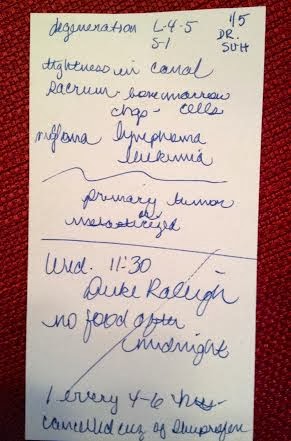 degeneration L-4-5 1/5
S-1 DR. SUH
tightness in canal
sacrum - bone marrow
chgs - cells
lymphoma
leukemia
primary tumor
or
metasterized
Wed. 11:30
Duke Raleigh
no food after
midnight
1 every 4-6 hrs
cancelled cuz of Ibuprofen